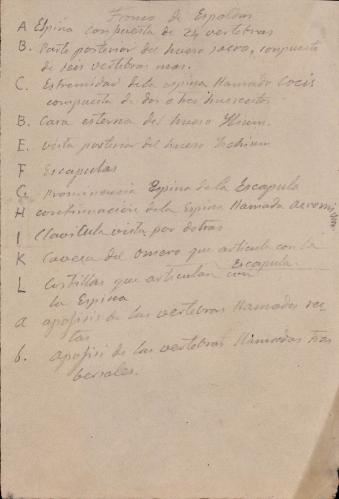 Tronco de Espaldas
A Espina compuesta de 24 vertebras
B. Parte posterior del hueso sacro, compuesta
de seis vertebras mas.
C. Estremidad de la espina llamado Cocis
compuesta de dos o tres huesecitos
B. Cara esterna del hueso Ilium.
E. vista posterior del hueso Ischium
F Escapulas
G. Prominencia Espina de la Escapula
H continuación de la Espina llamada acromi
I Clavicula vista por detras
K Cavesa del omero que articula con la
Escapula.
L Costillas que articulan con
la Espina
a apofisis de las vertebras llamadas rec-
tas
b. apofisi de las vertebras llamadas tras
bersales.